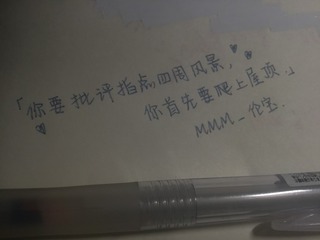 「你要批评指点四周风景，
你首先要爬上屋顶。」
MMM_伦宝.